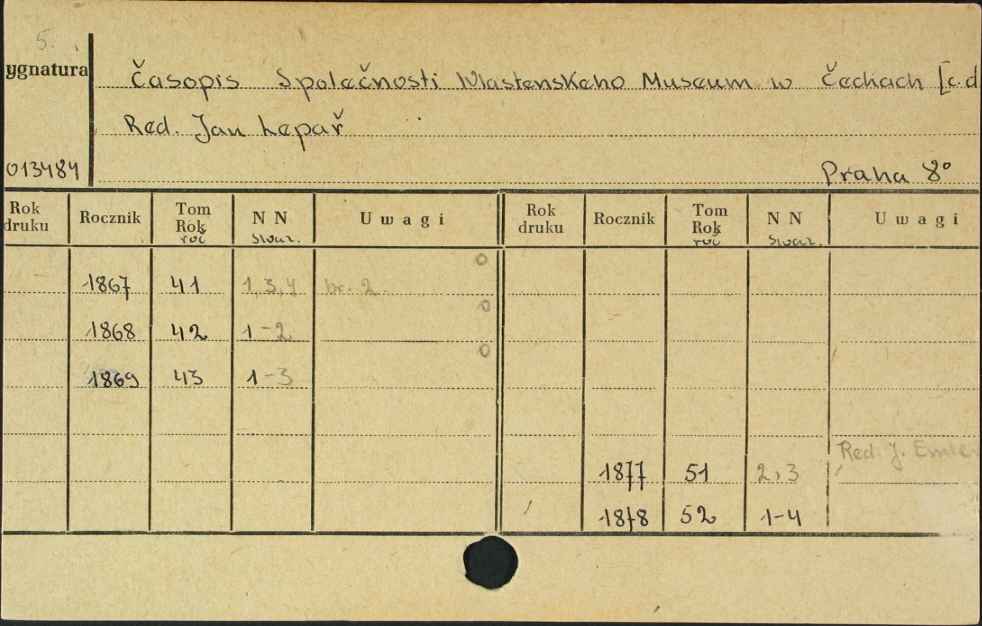 5.
ygnatura
Časopis Společnosti Wlastenskeho Museum w Čechach [c.d
Red. Jan Lepař
013484
Praha 8°
Rok druku Rocznik Tom Rok roč NN swaz. Uwagi Rok druku Rocznik Tom Rok roč NN swaz. Uwagi
1867 41 1,3,4 br. 2.
1868 42 1-2
1869 43 1-3
Red. J. Emler
1877 51 2,3
1878 52 1-4